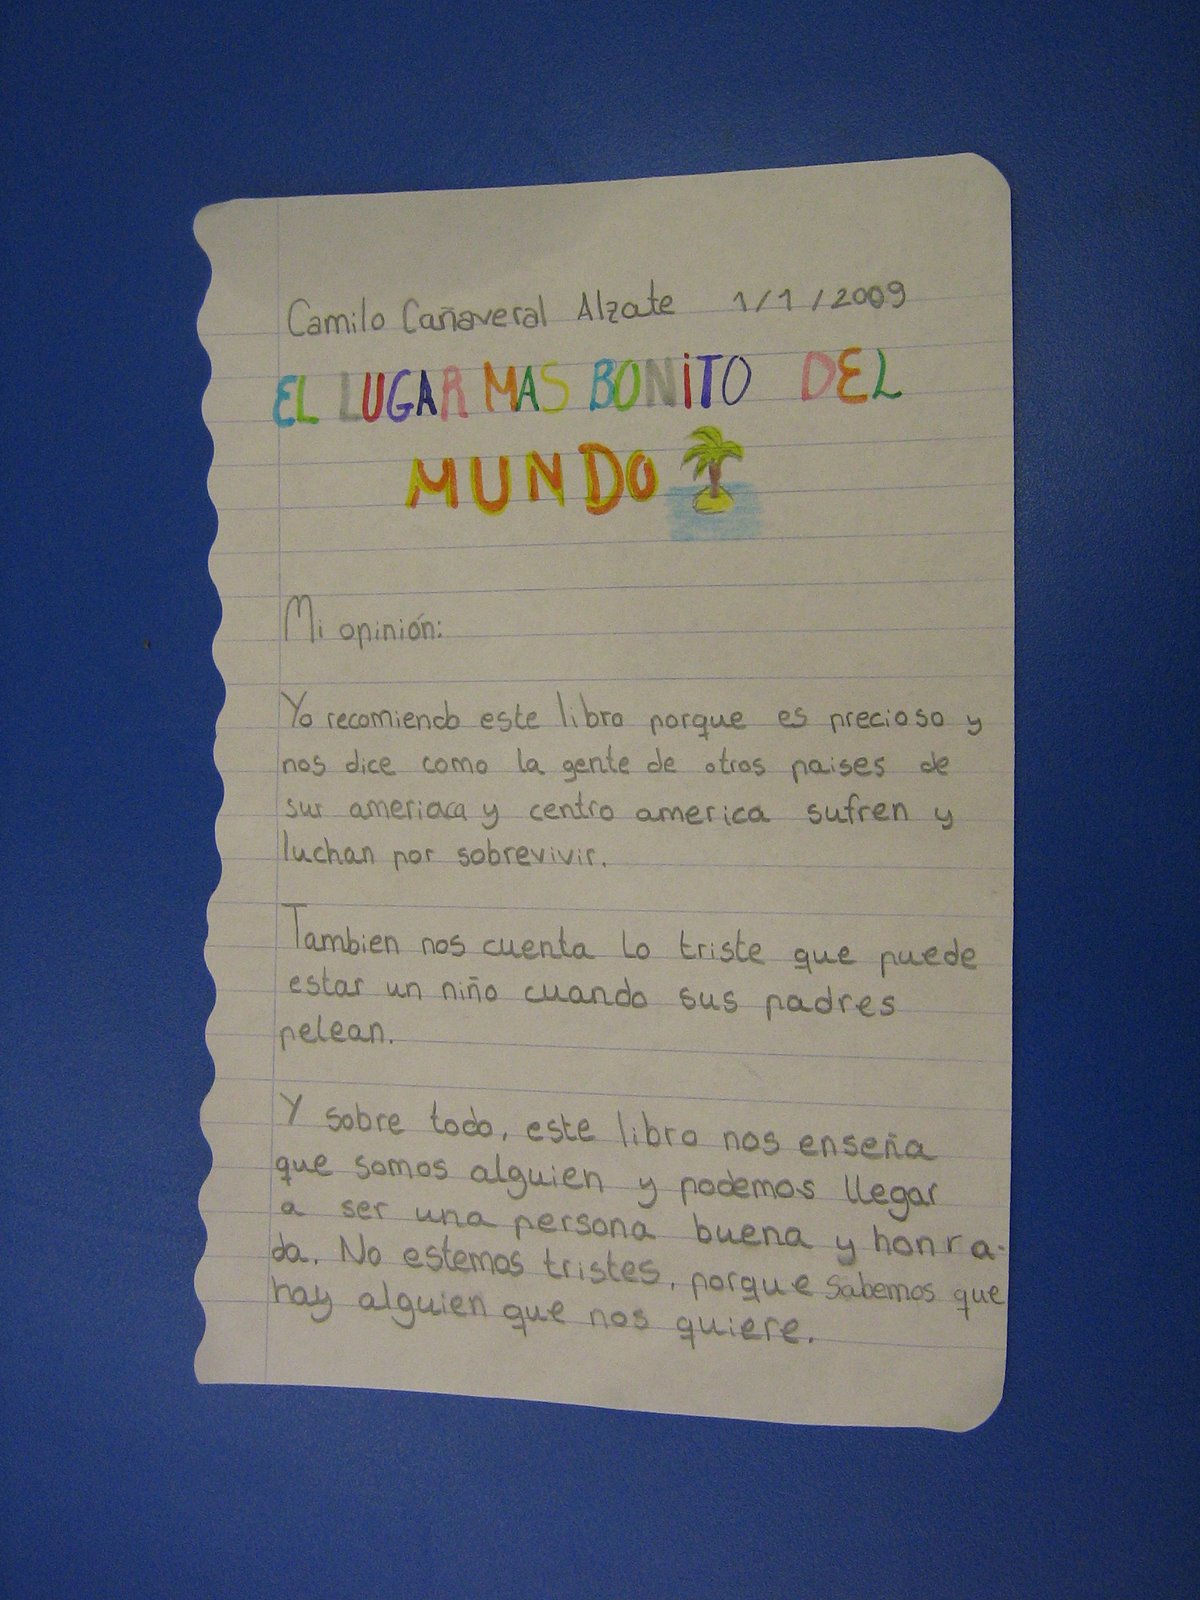 Camilo Cañaveral Alzate 1/1/2009
EL LUGAR MAS BONiTO DEL
MUNDO
Mi opinión:
Yo recomiendo este libro porque es precioso y
nos dice como la gente de otros paises de
sur ameriaca y centro america sufren y
luchan por sobrevivir.
Tambien nos cuenta lo triste que puede
estar un niño cuando sus padres
pelean.
Y sobre todo, este libro nos enseña
que somos alguien y podemos llegar
a ser una persona buena y honra-
da. No estemos tristes, porque sabemos que
hay alguien que nos quiere.